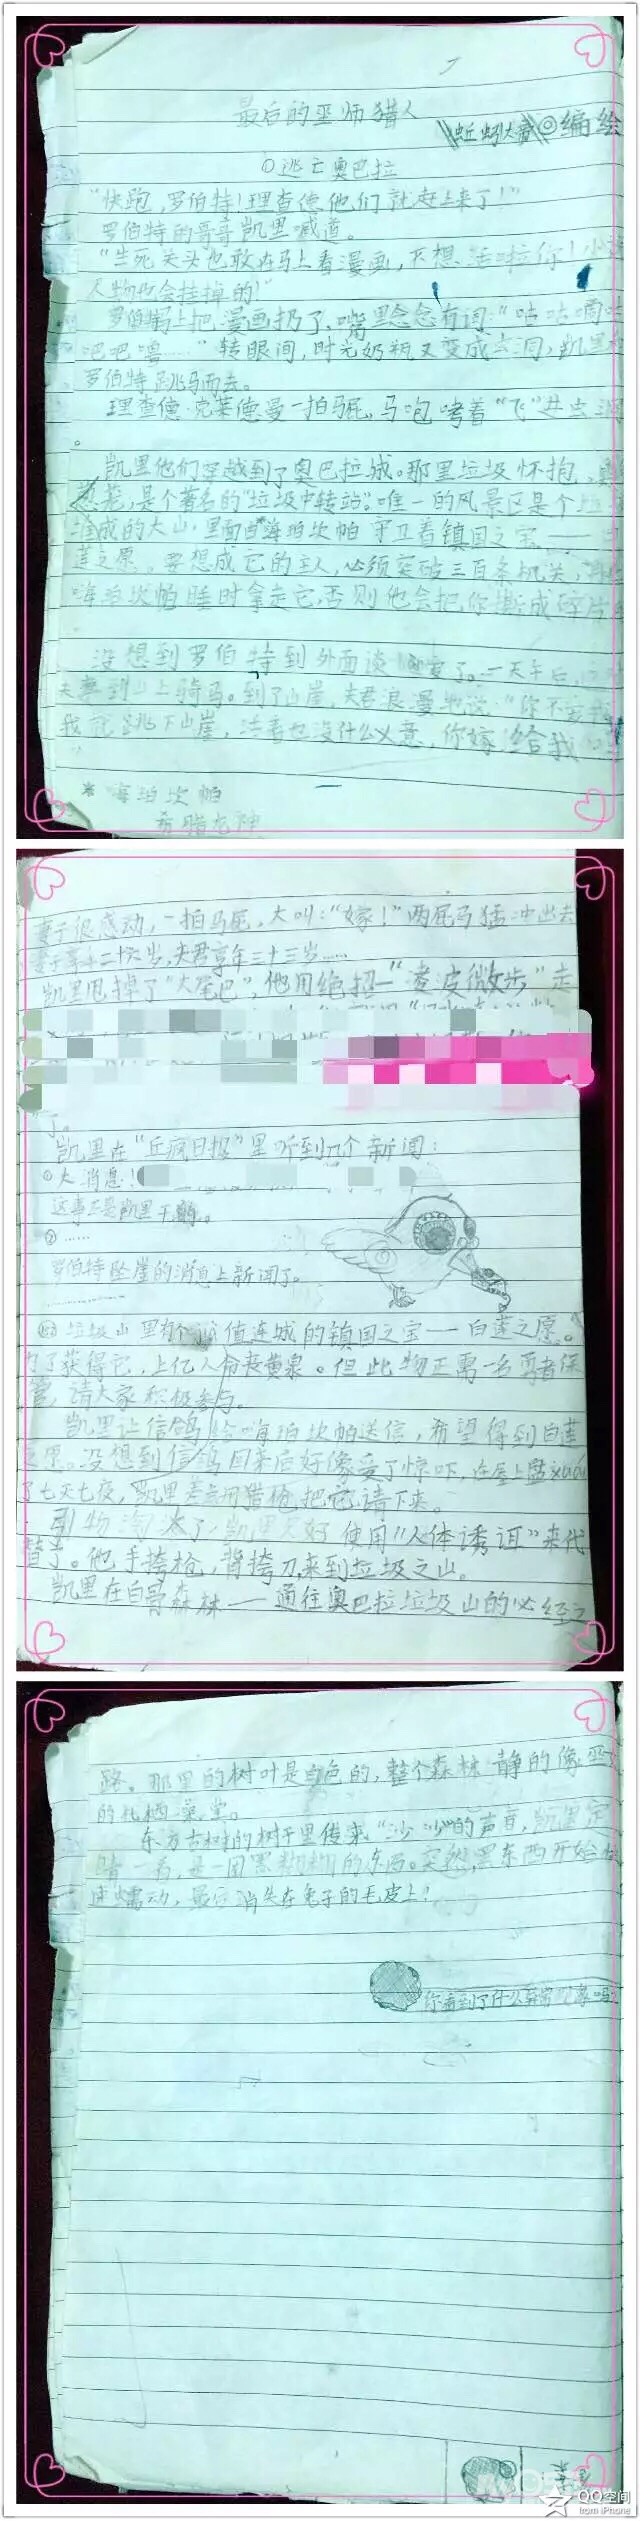 最后的巫师猎人
蚯蚓大帝◎编绘
①逃亡奥巴拉
“快跑，罗伯特！理查德他们就赶上来了！”
罗伯特的哥哥凯里喊道。
“生死关头也敢在马上看漫画，不想活啦你！小说
人物也会挂掉的！”
罗伯特马上把漫画扔了，嘴里念念有词：“咕咕嘀咕
吧吧噜……”转眼间，时光奶瓶又变成虫洞，凯里和
罗伯特跳马而去。
理查德·克莱德曼一拍马屁，马咆哮着“飞”进虫洞
。
凯里他们穿越到了奥巴拉城。那里垃圾怀抱，
葱茏，是个著名的“垃圾中转站”。唯一的风景区是个垃圾
堆成的大山，里面由*嗨珀坎帕守卫着镇国之宝——白
莲之原。要想成它的主人，必须突破三百条机关，再
嗨珀坎帕睡时拿走它，否则他会把你撕成碎片
没想到罗伯特到外面谈恋爱了。一天午后，
夫妻到山上骑马。到了山崖，夫君浪漫地说：“你不
我就跳下山崖，活着也没什么意，你嫁给我
*嗨珀坎帕
希腊龙神
妻子很感动，一拍马屁，大叫：“嫁！”两屁马猛冲出去
妻子享年二十六岁，夫君享年三十三岁……
凯里甩掉了“大尾巴”，他用绝招—“凌皮微步”走
了。
凯里在“丘疯日报”里听到几个新闻：
①大消息！
这事正是凯里干的。
②……
罗伯特坠崖的消息上新闻了。
…………
垃圾山里有个价值连城的镇国之宝——白莲之原。
为了获得它，上亿人命丧黄泉。但此物正需一名勇者保
管，请大家积极参与。
凯里让信鸽给嗨珀坎帕送信，希望得到白莲
之原。没想到信鸽回来后好像受了惊吓，在屋上盘xuán
了七天七夜，凯里差点用猎枪把它请下来。
引物淘汰了，凯里只好使用“人体诱饵”来代
替了。他手挎枪，背挎刀，来到垃圾之山。
凯里在白骨森林——通往奥巴拉垃圾山的必经之
路。那里的树叶是白色的，整个森林静的像巫
的
东方古树的树干里传来“沙沙”的声音，凯里定
睛一看，是一团黑糊糊的东西。突然，黑东西开始
速蠕动，最后消失在兔子的毛皮上？
你看到了什么异常现象吗
QQ空间
from iPhone